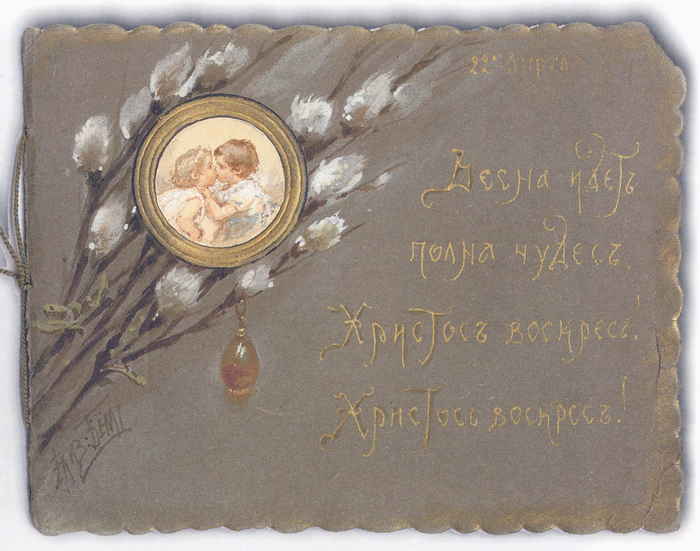 22го Апрѣля
Весна идетъ
полна чудесъ.
Христосъ воскресъ!
Христосъ воскресъ!
Елиз. Бёмъ